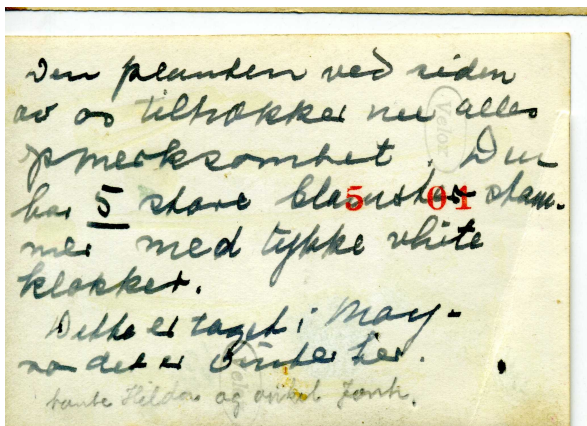 Den planten ved siden
av os tiltrækker nu alles
opmerksomhet. Den
har 5 store blomster stam-
mer med tykke white
klokker.
Dette er taget i May -
na det er vinter her.
tante Hilda og onkel
Velox
5 01